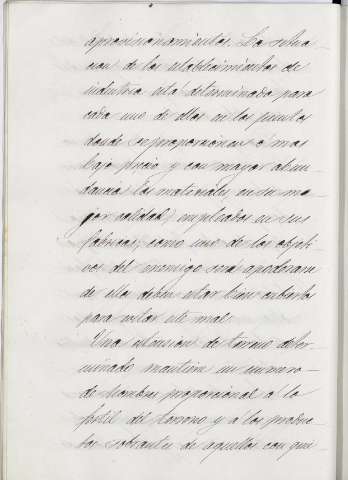 aprovisionamientos. La situa
cion de los establecimientos de
industria está determinada para
cada uno de ellos en los puntos
donde se proporcionen á mas
bajo precio y con mayor abun
dancia los materiales en su ma
yor calidad, empleados en sus
fabricas; como uno de los objeti
vos del enemigo será apoderarse
de ella deben estar bien cubiertos
para evitar este mal.
Una estension de terreno deter-
minado mantiene un numero-
de hombres proporcional á lo
fertil del terreno y á los produc
tos sobrantes de aquellos con qui